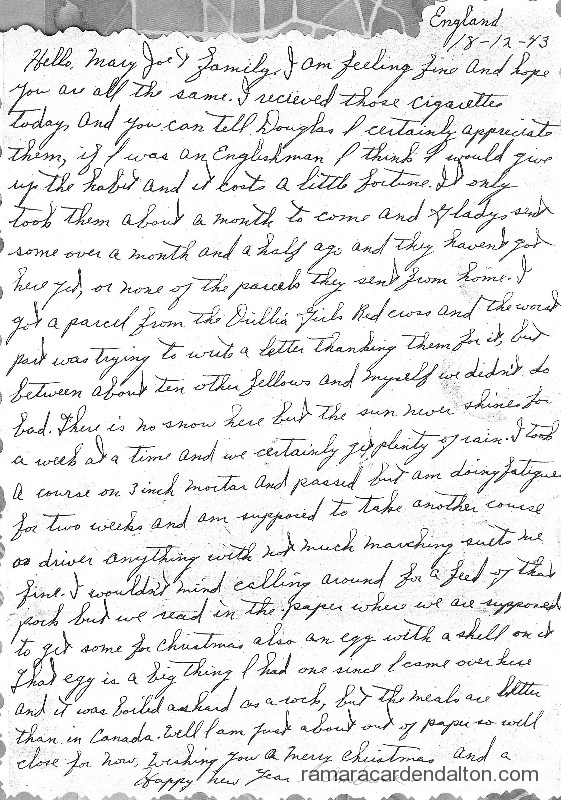 England
18-12-43
Hello, Mary Joe & Family, I am feeling fine and hope
you are all the same. I recieved those cigarettes
today, and you can tell Douglas I certainly appreciate
them, if I was an Englishman I think I would give
up the habit and it costs a little fortune. It only
took them about a month to come and Gladys sent
some over a month and a half ago and they haven't got
here yet, or none of the parcels they sent from home. I
got a parcel from the Girls Red cross and the worst
part was trying to write a letter thanking them for it, but
between about ten other fellows and myself we didn't do
bad. There is no snow here but the sun never shines for
a week at a time and we certainly get plenty of rain. I took
a course on 3 inch mortar and passed but am doing fatigue
for two weeks and am supposed to take another course
as driver anything with not much marching suits me
fine. I wouldn't mind calling around for a feed of that
pork but we read in the paper where we are supposed
to get some for Christmas also an egg with a shell on it
That egg is a big thing I had one since I came over here
and it was boiled as hard as a rock, but the meals are better
than in Canada. Well I am just about out of paper so will
close for now, Wishing you a merry christmas and a
Happy New Year
ramaracardendalton.com